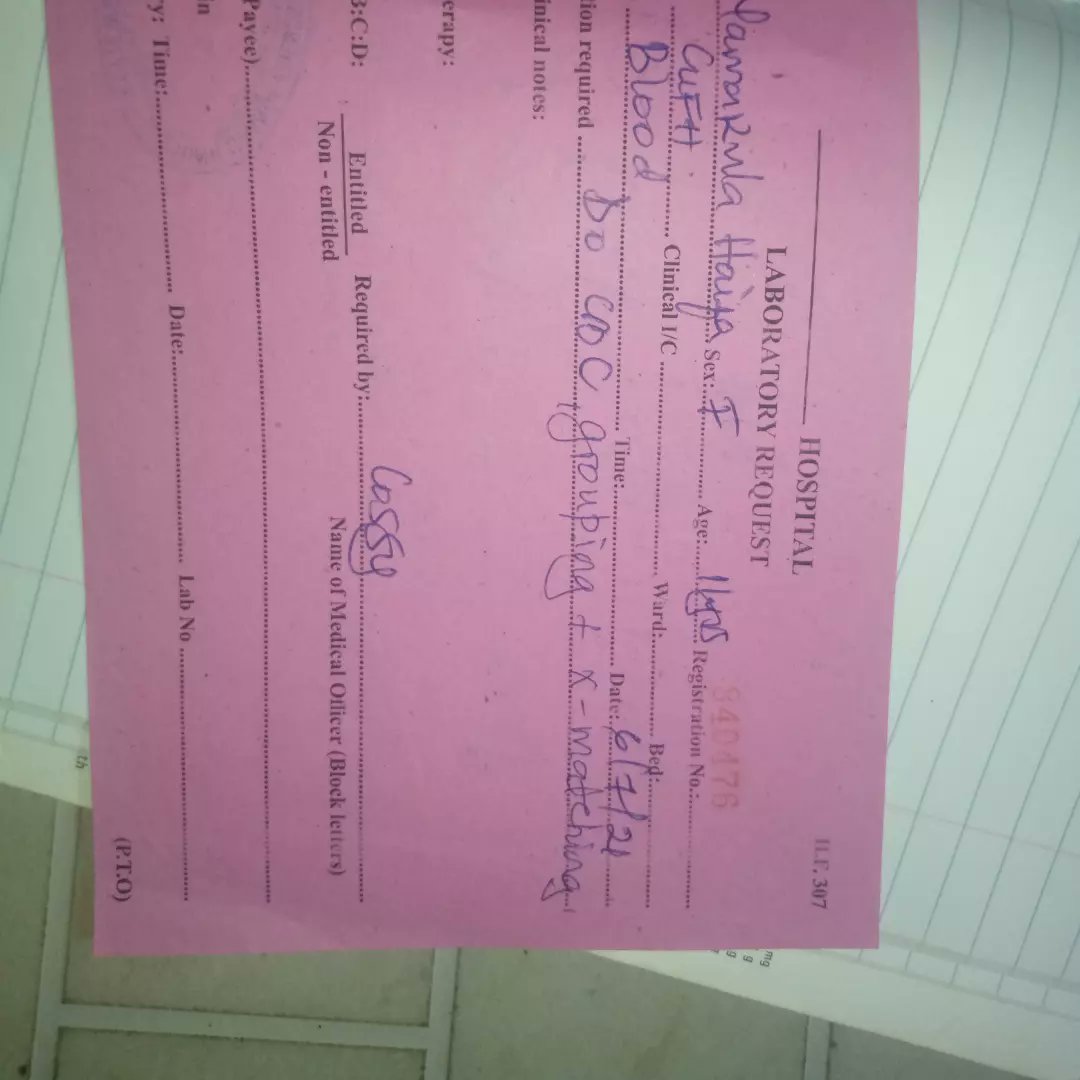 H.F. 307
HOSPITAL
LABORATORY REQUEST
840476
Haija Sex: F Age: Registration No.:
GUFH. Clinical I/C Ward: Bed:
Blood Time: Date: 6/7/21
tion required Do grouping + x-matching
inical notes:
erapy:
B:C:D: Entitled Required by: Cossy
Non - entitled Name of Medical Officer (Block letters)
Payee)
In
y: Time: Date: Lab No
(P.T.O)
th
mg
g
g